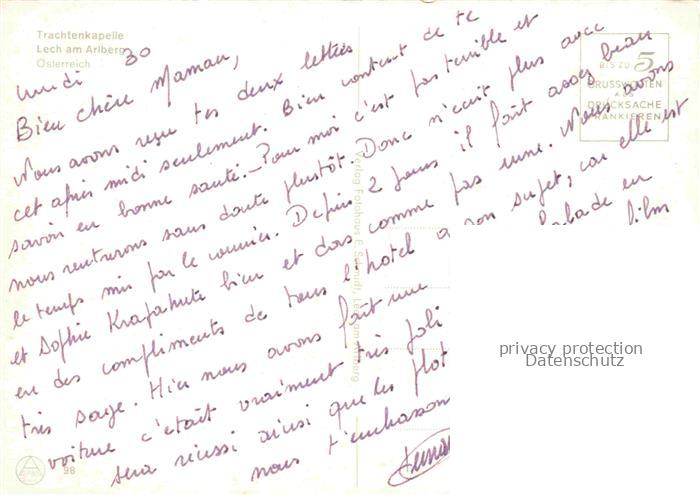 Trachtenkapelle
Lech am Arlberg
Österreich
BIS ZU 5
GRUSSWORTEN
ALS
DRUCKSACHE
FRANKIEREN
Lundi 30
Bien chère Maman,
Nous avons reçu tes deux lettres
cet après midi seulement. Bien content de te
savoir en bonne santé. - Pour moi c'est pas terrible et
nous rentrerons sans doute plustôt. Donc n'écrit plus avec
le temps mis par le courrier. Depuis 2 jours il fait assez beau
et Sophie bien et dors comme pas une. Nous avons
eu des compliments de tous l'hotel a son sujet, car elle est
très sage. Hier nous avons fait une balade en
voiture c'était vraiment très joli film
sera réussi ainsi que les
nous t'embrasson
Verlag Fotohaus F. Schmidt, Lech am Arlberg
98
privacy protection
Datenschutz